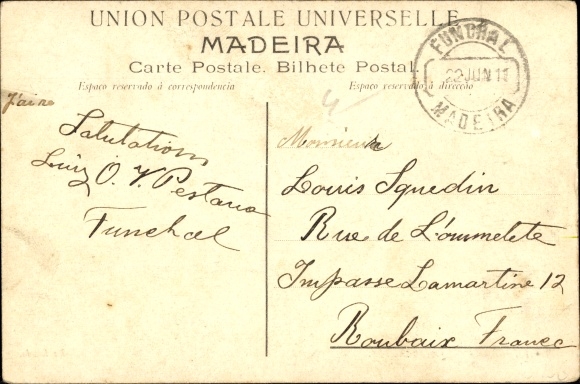 UNION POSTALE UNIVERSELLE
MADEIRA
Carte Postale. Bilhete Postal.
Espaço reservado á correspondencia
Espaço reservado á direcção
FUNCHAL
22 JUN 11
MADEIRA
Salutations
Luiz O. V. Pestana
Funchal
Monsieur
Louis Squedin
Rue de L'oummelete
Impasse Lamartine 12
Roubaix France